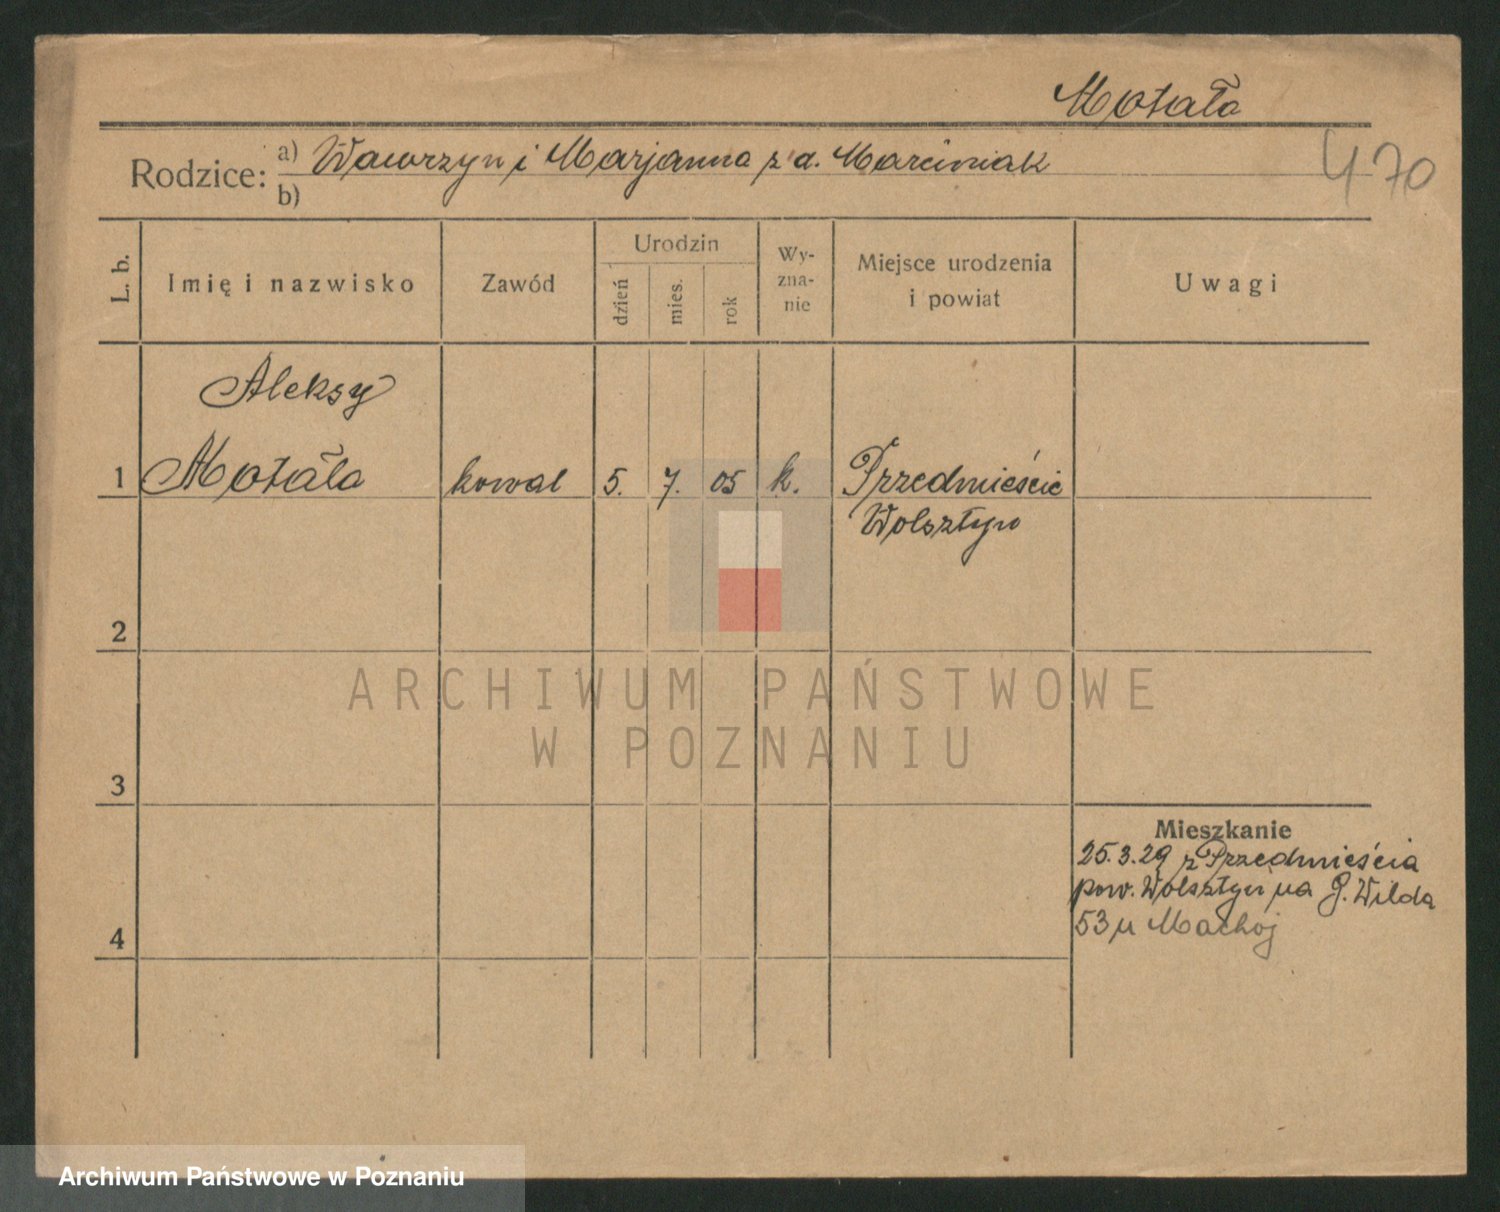 Motała
Rodzice: a) Wawrzyn i Marjanna z d. Marciniak
b)
470
L. b.
Imię i nazwisko
Zawód
Urodzin
dzień
mies.
rok
Wy-
zna-
nie
Miejsce urodzenia
i powiat
Uwagi
Aleksy
1 Motała kowal 5. 7. 05 k. Przedmieście
Wolsztyn
2
3
4
Mieszkanie
25.3.29 z Przedmieścia
pow. Wolsztyn na G. Wilda
53 u Machoj
ARCHIWUM PAŃSTWOWE
W POZNANIU
Archiwum Państwowe w Poznaniu